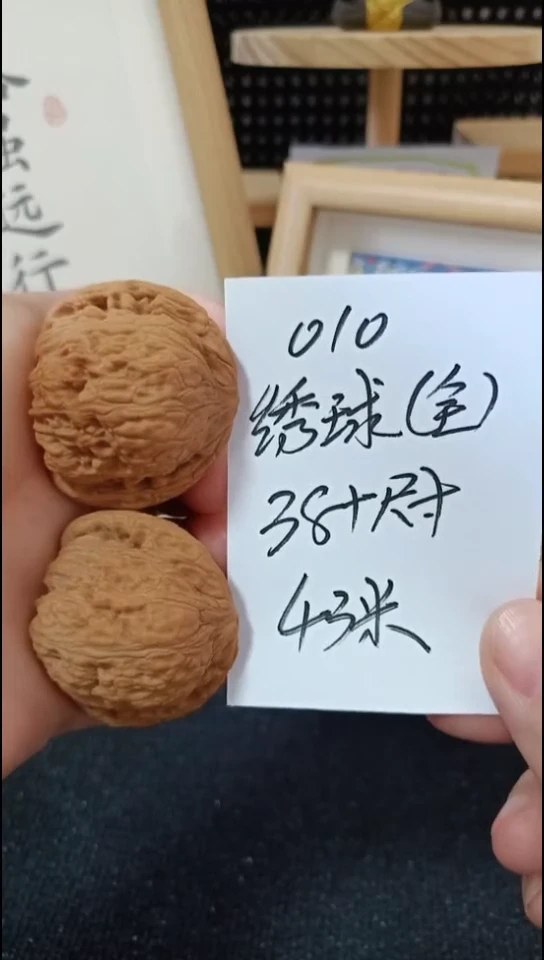 远行
010
绣球(全)
38+尺寸
43米